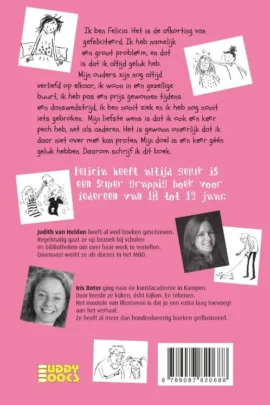 Ik ben Felicia. Het is de afkorting van
gefeliciteerd. Ik heb namelijk
een groot probleem, en dat
is dat ik altijd geluk heb.
Mijn ouders zijn nog altijd
verliefd op elkaar, ik woon in een gezellige
buurt, ik heb pas een prijs gewonnen tijdens
een danswedstrijd, ik ben nooit ziek en ik heb nog nooit
iets gebroken. Mijn liefste wens is dat ik ook een keer
pech heb, net als anderen. Het is gewoon oneerlijk dat ik
daar niet over mee kan praten. Mijn doel is een keer géén
geluk hebben. Daarom schrijf ik dit boek.
Felicia heeft altijd geluk is
een super grappig boek voor
iedereen van 10 tot 14 jaar.
Judith van Helden heeft al veel boeken geschreven.
Regelmatig gaat ze op bezoek bij scholen
en bibliotheken om over haar werk te vertellen.
Daarnaast werkt ze als docent in het MBO.
Iris Boter ging naar de kunstacademie in Kampen.
Daar leerde ze kijken, écht kijken. En tekenen.
Het mooiste van illustreren is dat je een extra laag toevoegt
aan het verhaal.
Ze heeft al meer dan honderdveertig boeken geïllustreerd.
BUDDY
BOOKS
9 789087 820688